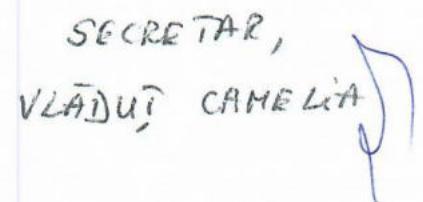 SECRETAR,
VLĂDUȚ CAMELIA